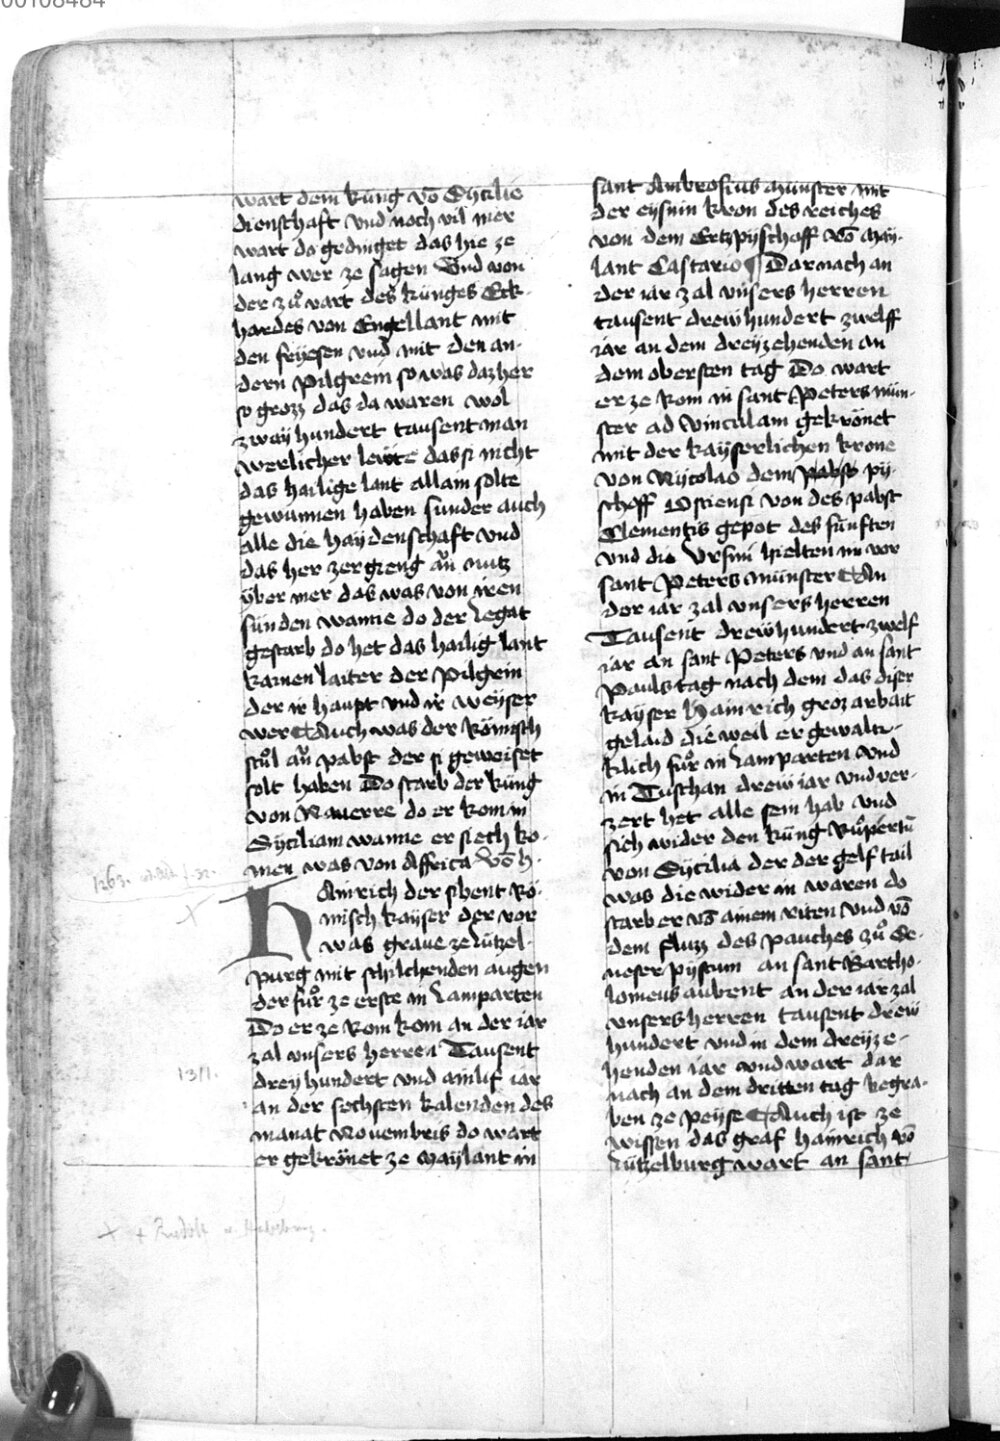 00108484
wart dem kung vō Sycilie
dienschaft vnd noch vil mer
wart do gedinget das hie ze
lang wer ze sagen Vnd von
der zuͦ vart des kunges Eck-
hardes von Engellant mit
den fryesen vnd mit den an-
dern pilgrein so was daz her
so grozz das da waren wol
zwaÿ hundert tausent man
werlicher lewte das si nicht
das hailige lant allain solte
gewunnen haben sunder auch
alle die haÿdenschaft vnd
das her zergieng an nutz
vber mer das was von iren
sunden wanne do der Legat
gestarb do het das hailig lant
kainen laiter der pilgrein
der ir haupt vnd ir weÿser
wer Auch was der Römisch
stuͦl an pabst der si geweiset
solt haben Do starb der kung
von Nauerre do er kom in
Syciliam wanne er siech ko-
men was von Affrica Vō h.
Hainrich der sibent Rö-
misch kayser der vor
was graue ze lützel-
purg mit schilchenden augen
der fuͦr ze erste in Lamparten
Do er ze Rom kom an der iar
zal vnsers herren Tausent
dreÿ hundert vnd ainlif iar
an der sechsten kalenden des
manat Nouembris do wart
er gekrönet ze Maÿlant in
sant Ambrosius münster mit
der eysnin kron des reiches
von dem Ertzpyschaff vō Maÿ-
lant Castario ¶ Dar nach an
der iar zal vnsers herren
tausent drew hundert zwelff
iar an dem dreyzehenden an
dem obersten tag Do wart
er ze Rom in sant Peters mün-
ster ad Vinculam gekrönet
mit der kayserlichen krone
von Nycolao dem pabst pÿ-
schoff Ostiensi von des pabst
Clementis gepot des fünften
vnd die Vrsini hielten im vor
sant Peters münster An
der iar zal vnsers herren
Tausent drew hundert zwelf
iar an sant Peters vnd an sant
Pauls tag nach dem das diser
kayser hainrich groz arbait
gelaid die weil er gewalti-
klich fuͦr in Lamparten vnd
in Tuschan drew iar vnd ver-
zert het alle sein hab vnd
sich wider den küng Ruͦpertū
von Sycilia der der gelf tail
was die wider in waren do
starb er vō ainem riten vnd vō
dem fluzz des pauches zuͦ Se-
neser pystum an sant Bartho-
lomeus aubent an der iar zal
vnsers herren tausent drew
hundert vnd in dem dreyze-
henden iar vnd wart dar
nach an dem dritten tag begra-
ben ze peyse Auch ist ze
wissen das graf hainrich vō
Lützelburg wart an sant
1263.
1311.